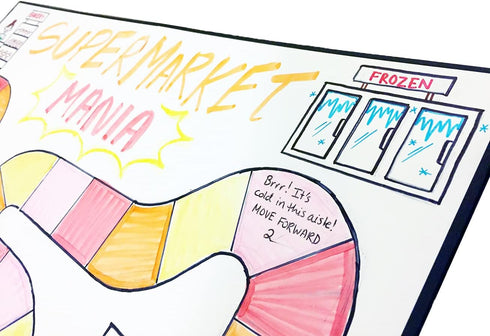 SUPERMARKET
MANIA
FROZEN
Brrr! It's
cold in this aisle!
MOVE FORWARD
2